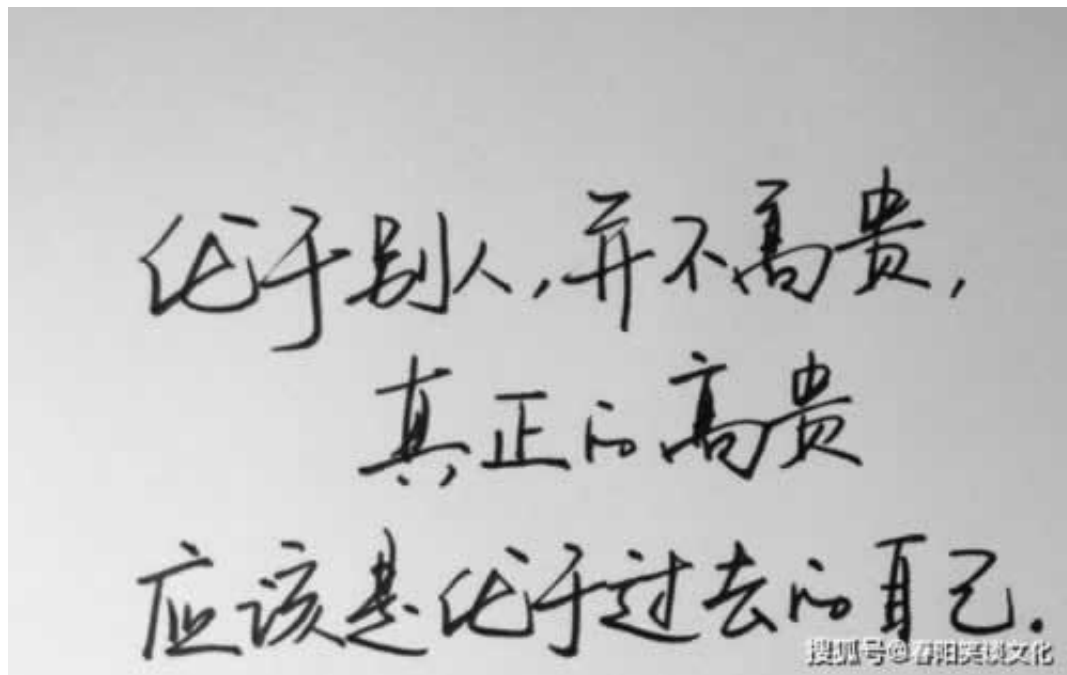 优于别人，并不高贵，
真正的高贵
应该是优于过去的自己.
搜狐号@春阳笑谈文化